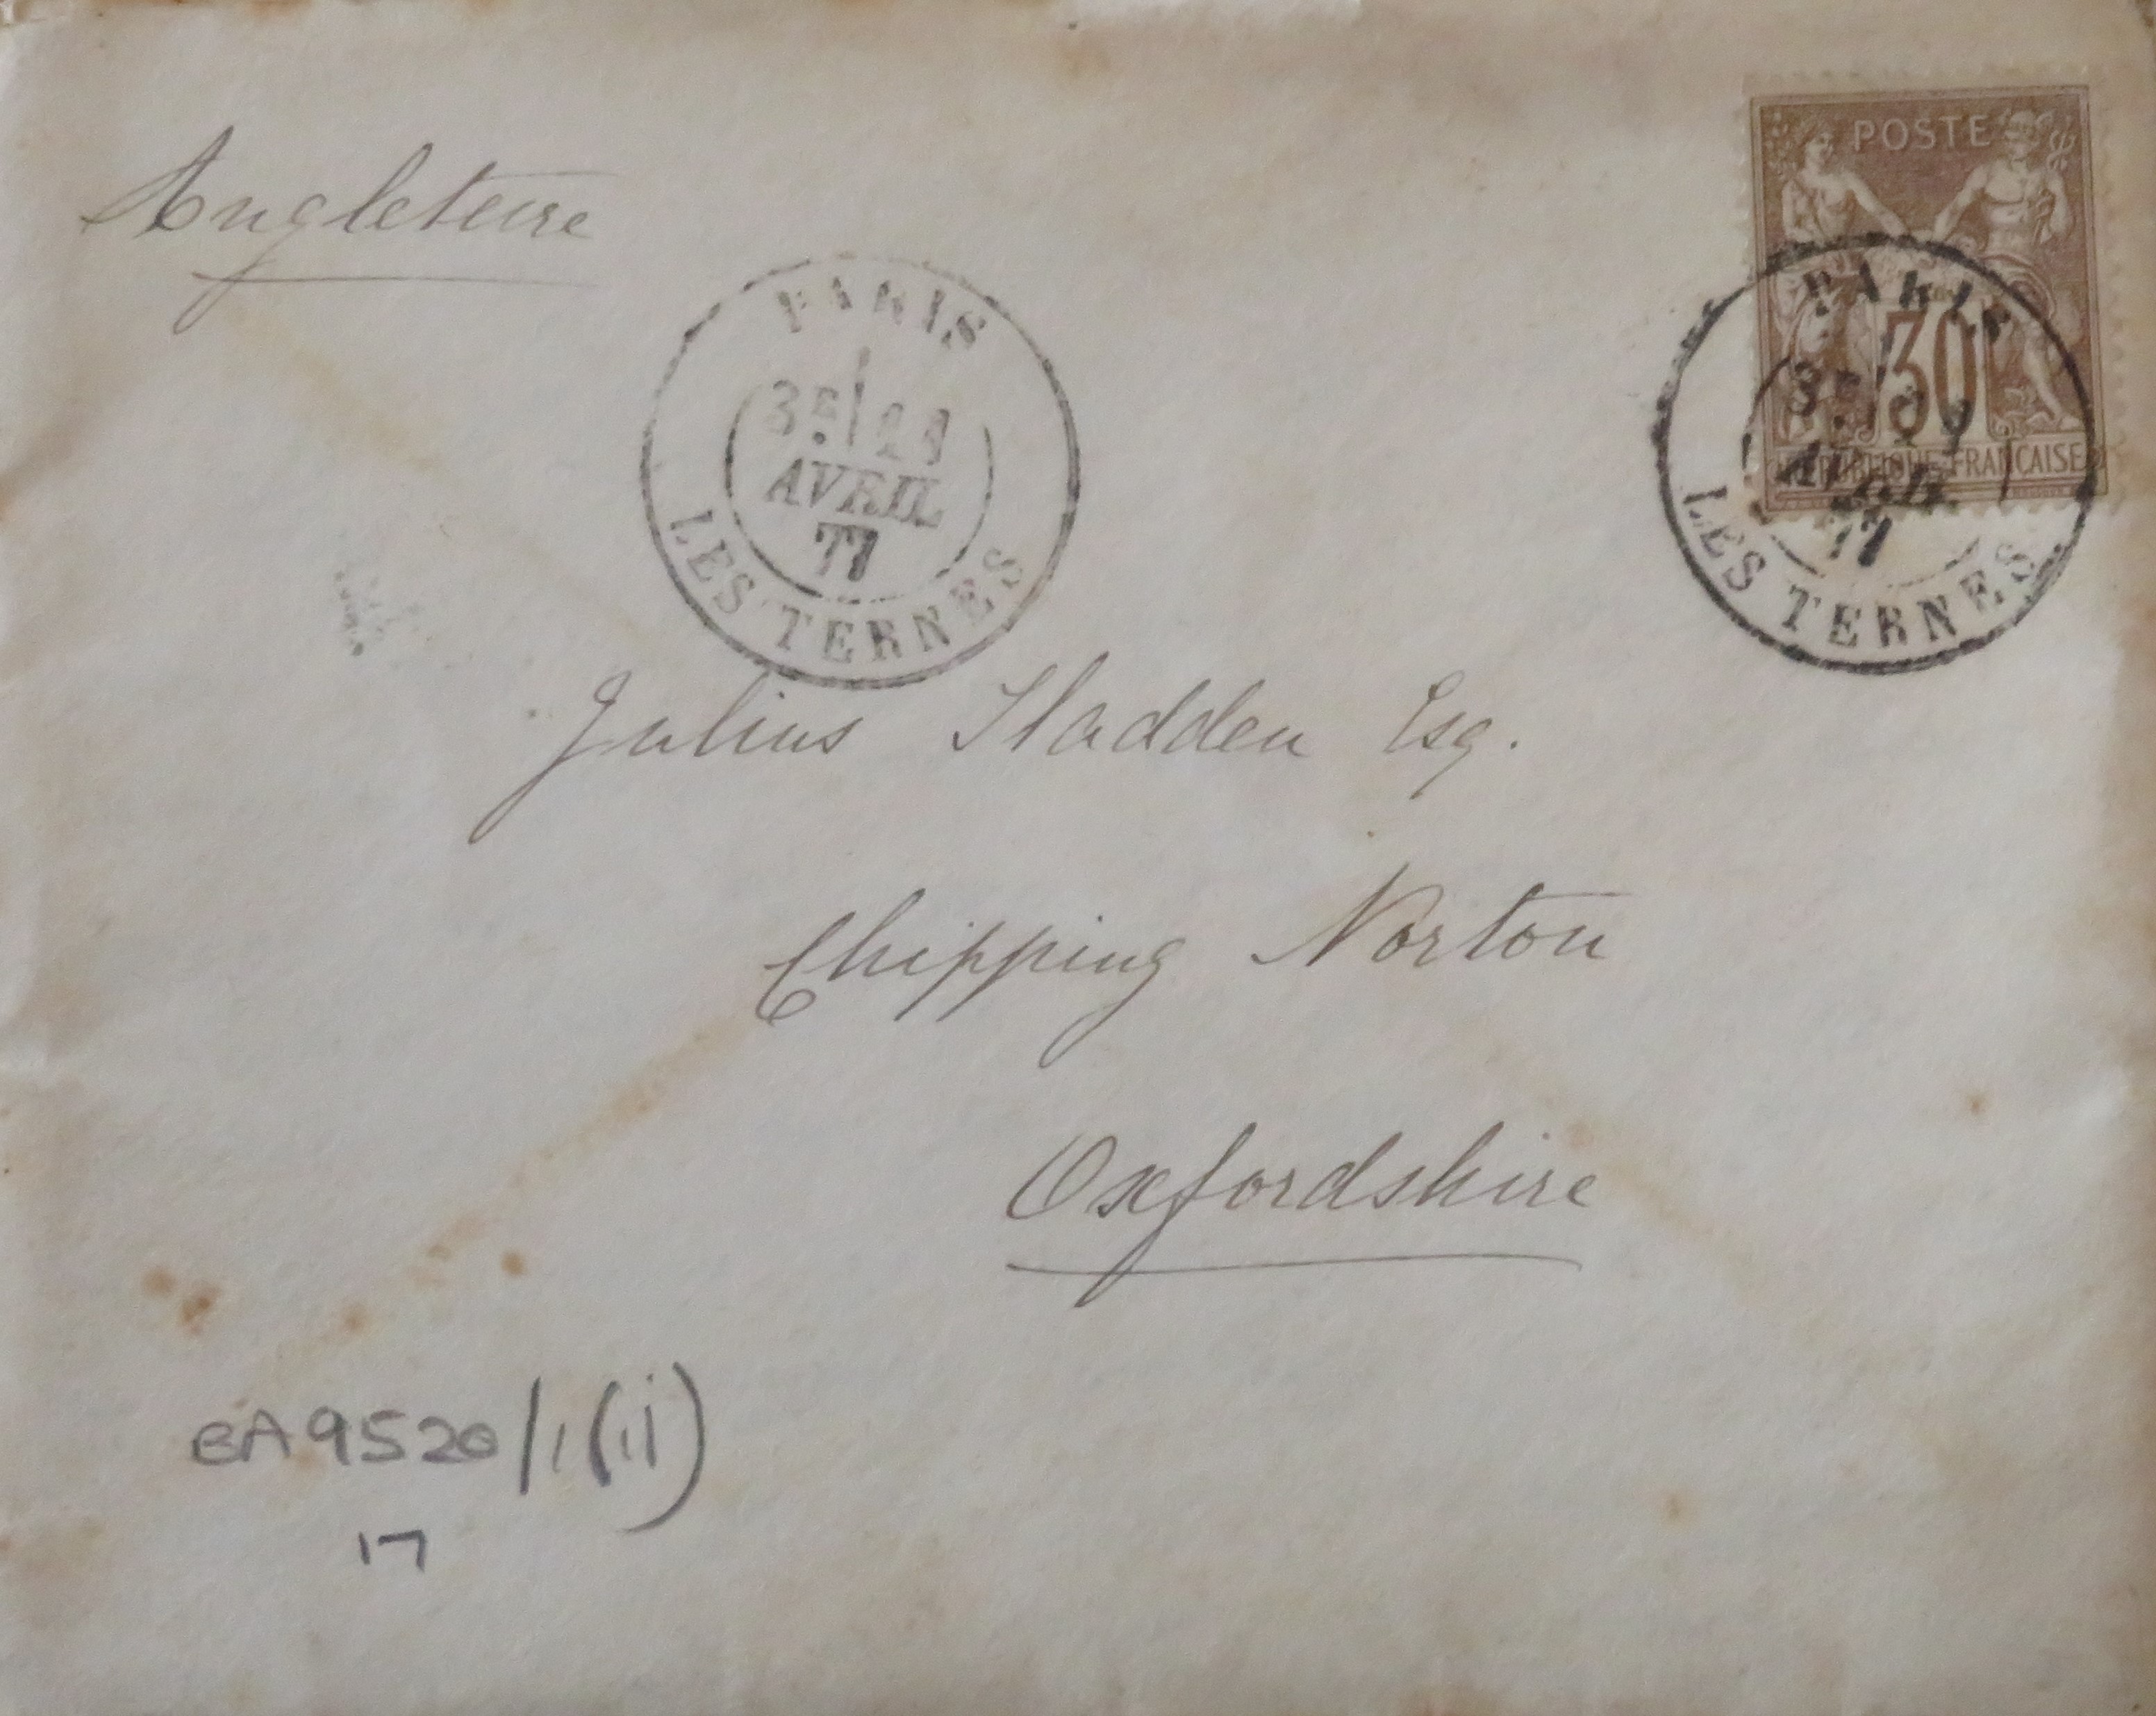 Angleterre
POSTE
30
REPUBLIQUE FRANCAISE
PARIS
3E
AVRIL
77
LES TERNES
PARIS
3E
77
LES TERNES
Julius Sladden Esq.
Chipping Norton
Oxfordshire
BA9520/1(ii)
17